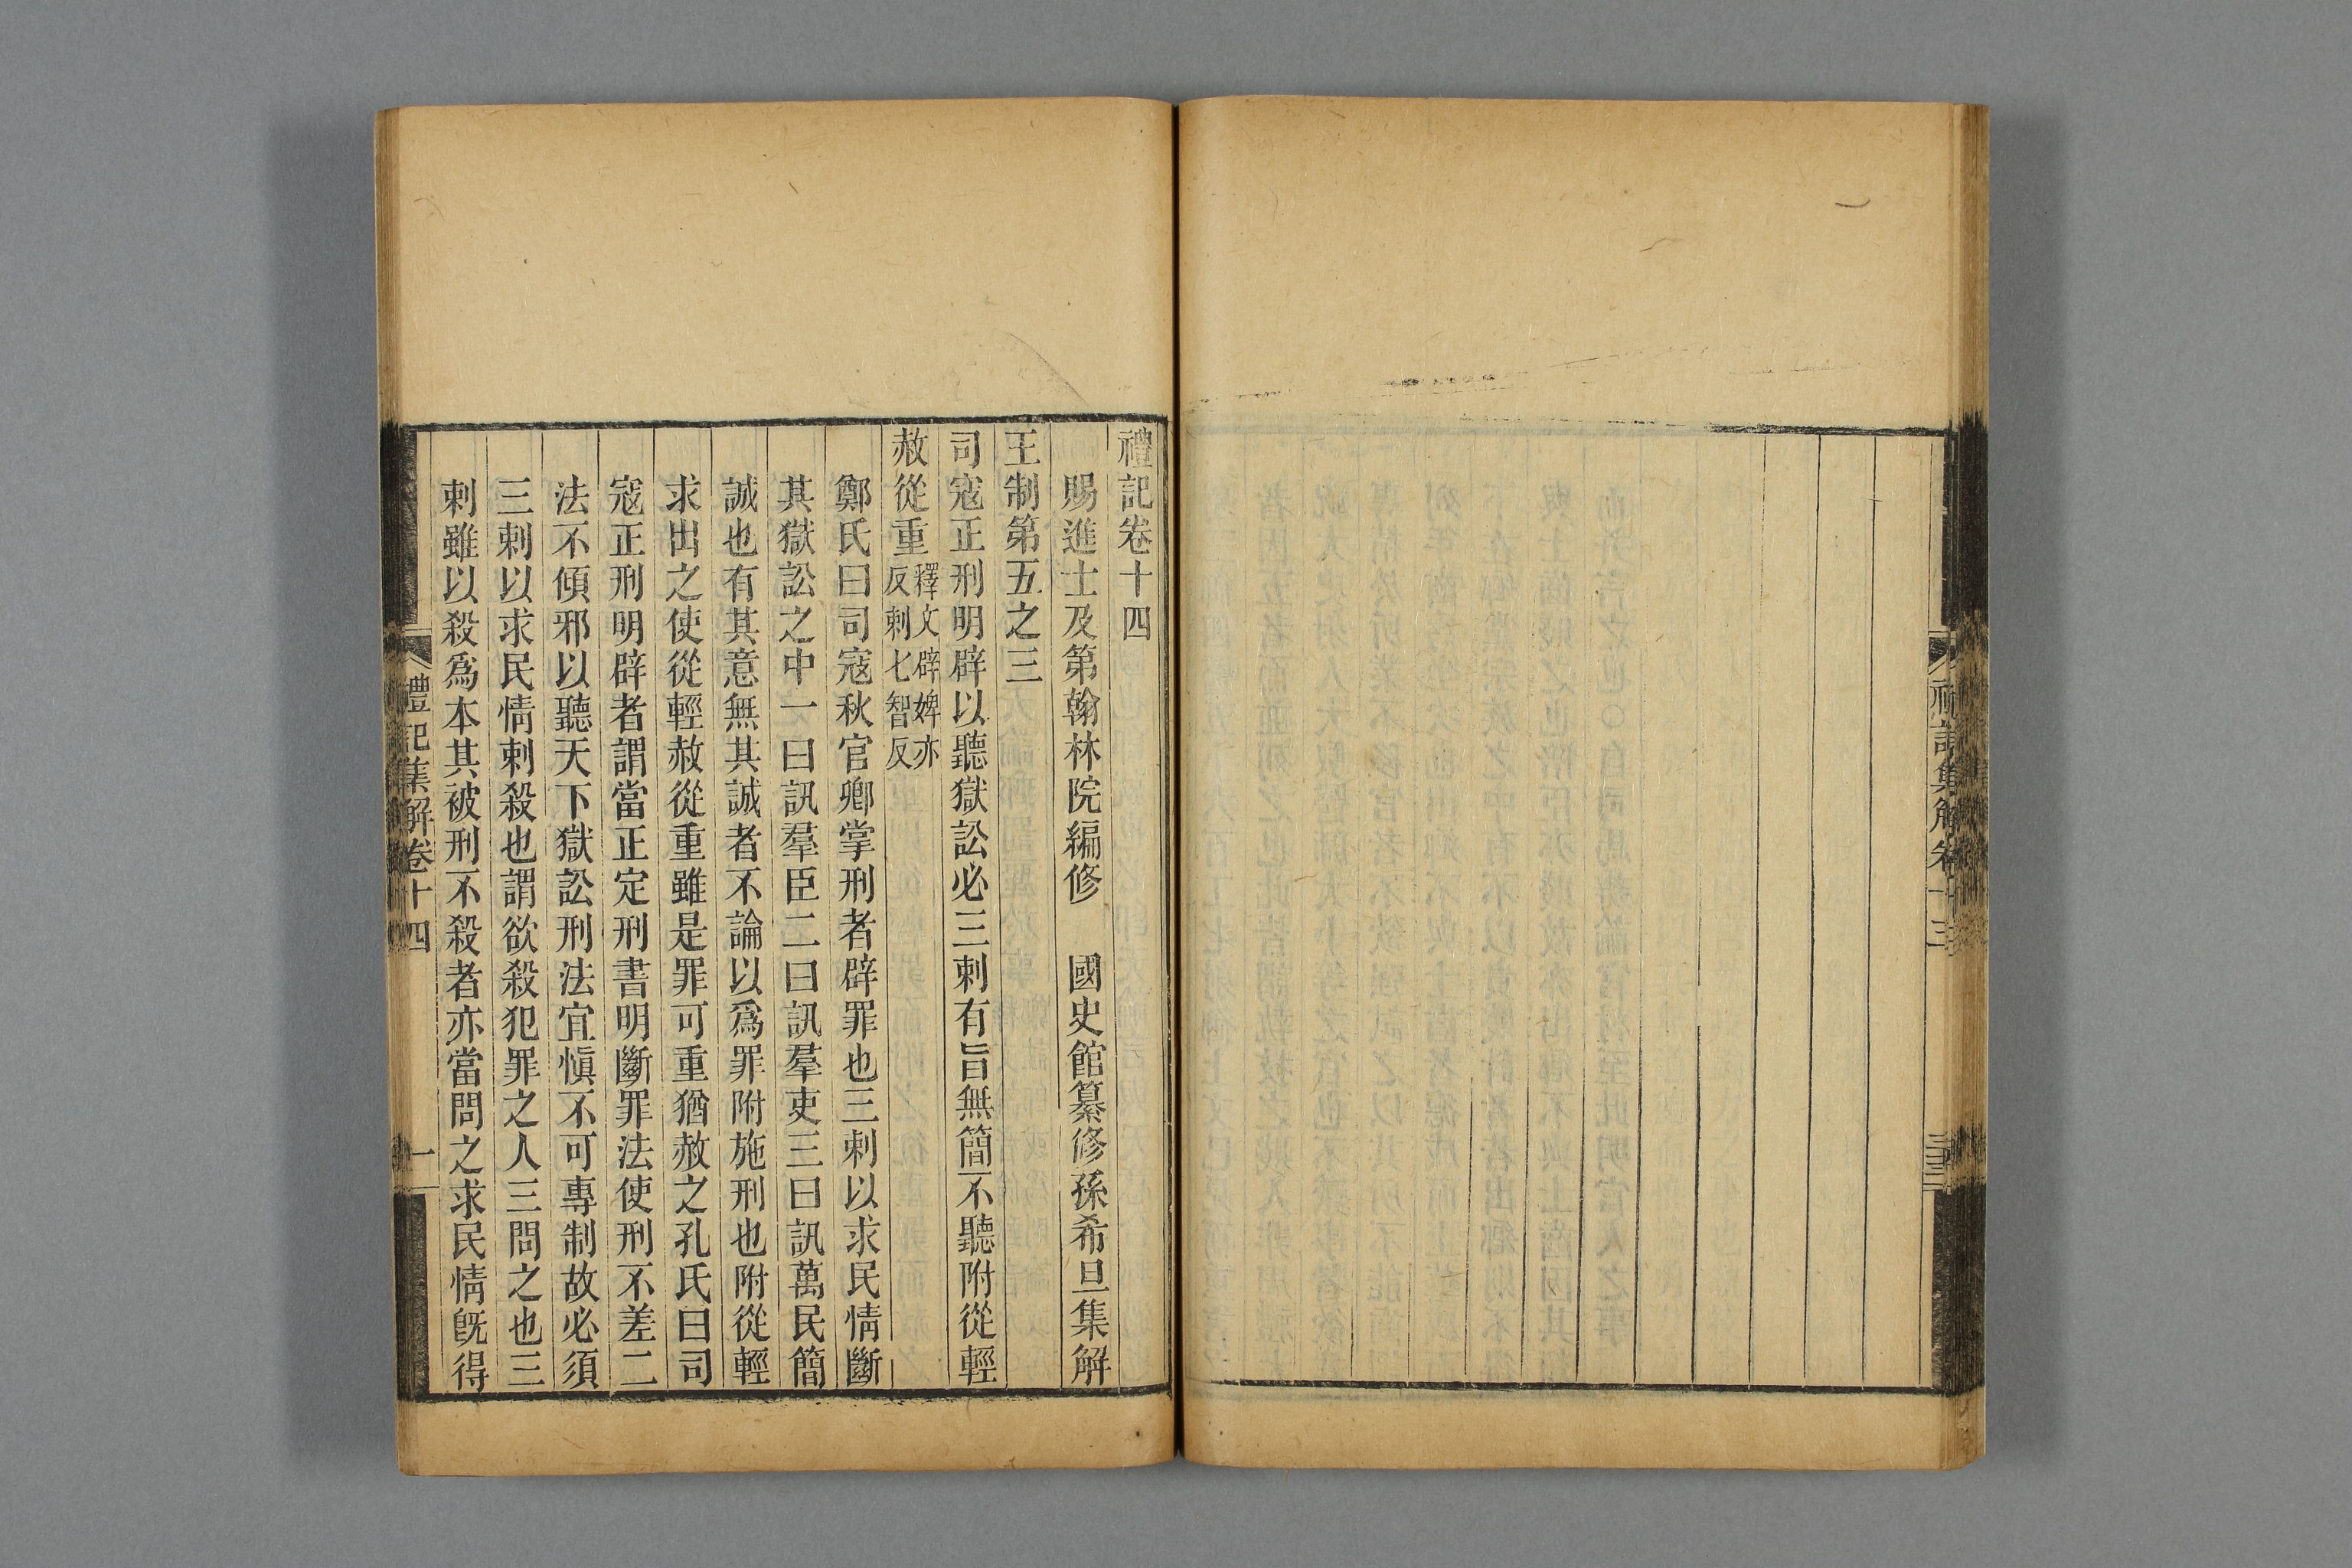 禮記集解卷十三
禮記卷十四
賜進士及第翰林院編修　國史館纂修孫希旦集解
王制第五之三
司寇正刑明辟以聽獄訟必三刺有旨無簡不聽附從輕
赦從重釋文辟婢亦反刺七智反
鄭氏曰司寇秋官卿掌刑者辟罪也三刺以求民情斷
其獄訟之中一曰訊羣臣二曰訊羣吏三曰訊萬民簡
誠也有其意無其誠者不論以爲罪附施刑也附從輕
求出之使從輕赦從重雖是罪可重猶赦之孔氏曰司
寇正刑明辟者謂當正定刑書明斷罪法使刑不差二
法不傾邪以聽天下獄訟刑法宜愼不可專制故必須
三刺以求民情刺殺也謂欲殺犯罪之人三問之也三
刺雖以殺爲本其被刑不殺者亦當問之求民情旣得
禮記集解卷十四
一